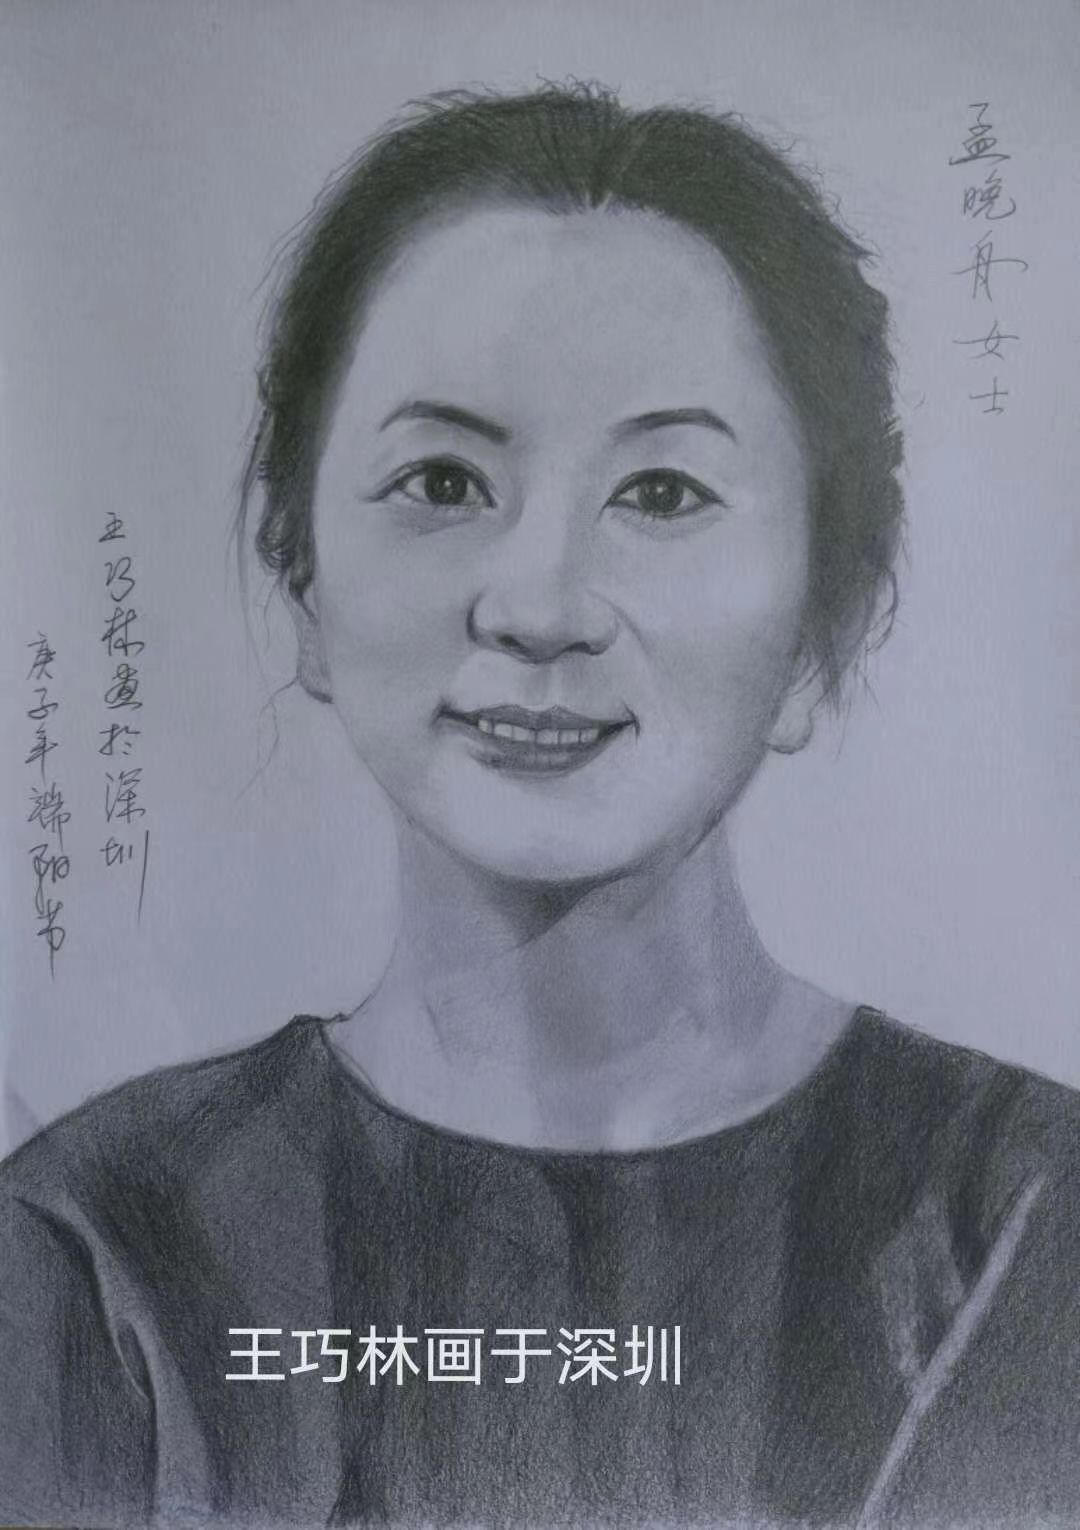 孟晚舟女士
王巧林画于深圳
庚子年端阳节
王巧林画于深圳